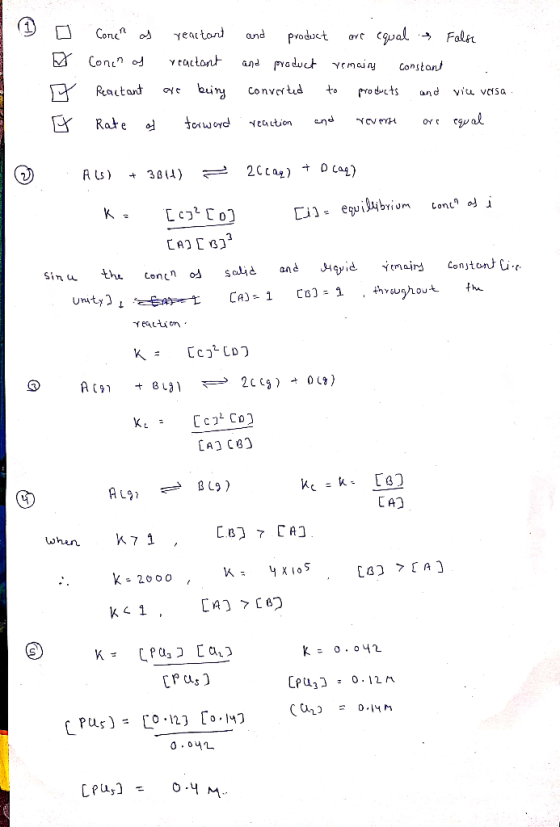 ① ☐ Concn of reactant and product are equal → False
☑ Concn of reactant and product remains constant
☑ Reactant are being converted to products and vice versa.
☑ Rate of forward reaction and reverse are equal
② A(s) + 3B(l) ⇌ 2C(aq) + D(aq)
K = [C]² [D] / [A] [B]³ [i] = equilibrium concn of i
since the concn of solid and liquid remains constant (i.e.
unity) , [A] = 1 [B] = 1 , throughout the
reaction.
K = [C]² [D]
③ A(g) + B(g) ⇌ 2C(g) + D(g)
Kc = [C]² [D] / [A] [B]
④ A(g) ⇌ B(g) Kc = K = [B] / [A]
when K > 1 , [B] > [A]
∴ K = 2000 , K = 4 x 105 , [B] > [A]
K < 1 , [A] > [B]
⑤ K = [PCl3] [Cl2] / [PCl5] K = 0.042
[PCl3] = 0.12 M
(Cl2) = 0.14 M
[PCl5] = [0.12] [0.14] / 0.042
[PCl5] = 0.4 M..